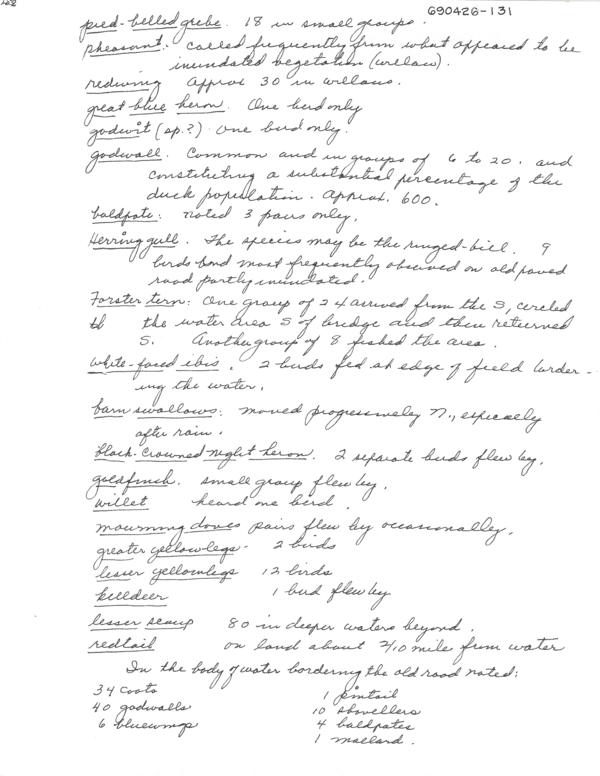 690426-131
pied-billed grebe. 18 in small groups.
pheasant: called frequently from what appeared to be
inundated vegetation (willow).
redwing approx 30 in willows.
great blue heron. One bird only
godwit (sp.?) one bird only.
gadwall. Common and in groups of 6 to 20. and
constituting a substantial percentage of the
duck population. Approx. 600.
baldpate: noted 3 pairs only.
Herring gull. The species may be the ringed-bill. 9
birds and most frequently observed on old paved
road partly inundated.
Forster tern: One group of 24 arrived from the S, circled
the water area S of bridge and then returned
S. Another group of 8 fished the area.
white-faced ibis. 2 birds fed at edge of field border-
ing the water.
barn swallows: moved progressively N., especially
after rain.
black-crowned night heron. 2 separate birds flew by.
goldfinch. small group flew by.
willet heard one bird.
mourning doves pairs flew by occasionally.
greater yellowlegs. 2 birds
lesser yellowlegs 12 birds
killdeer 1 bird flew by
lesser scaup 80 in deeper waters beyond.
redtail on land about 2/10 mile from water
In the body of water bordering the old road noted:
34 coots 1 pintail
40 gadwalls 10 shovellers
6 bluewings 4 baldpates
1 mallard.